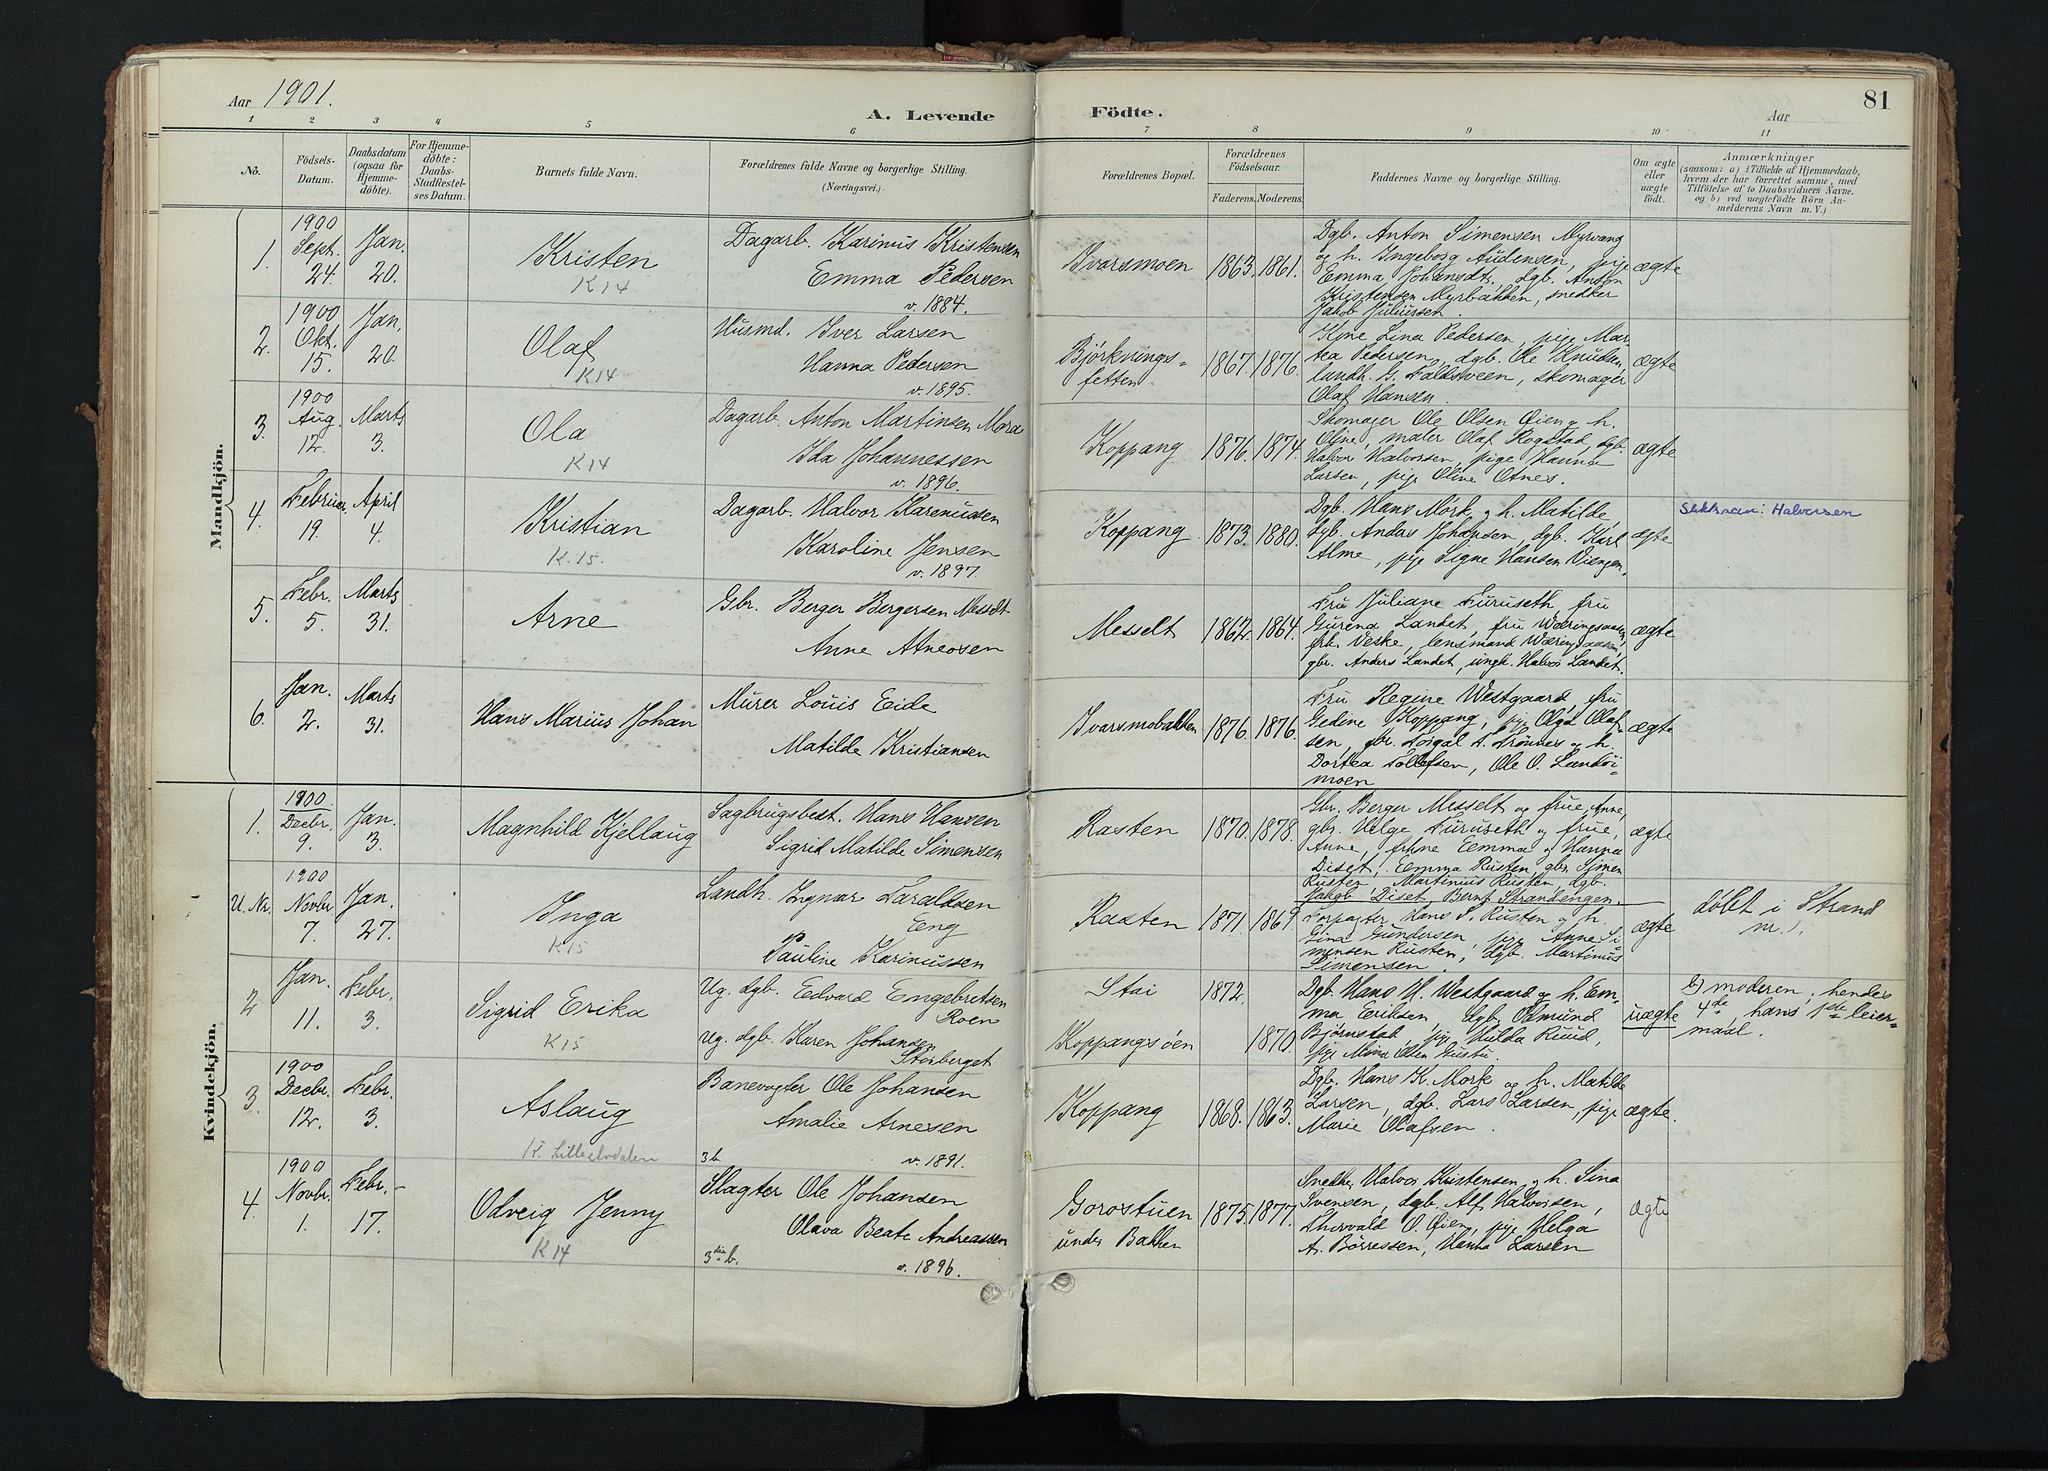 Aar 1901.
A. Levende
Födte.
Aar
81
1 2 3 4 5 6 7 8 9 10 11
No.
Födsels-Datum.
Daabsdatum (ogsaa for Hjemme-döbte).
For Hjemme-döbte: Daabs-Stadfæstel-ses Datum.
Barnets fulde Navn.
Forældrenes fulde Navne og borgerlige Stilling. (Næringsvei.)
Forældrenes Bopæl.
Forældrenes Födselsaar.
Faderens. Moderens.
Faddernes Navne og borgerlige Stilling.
Om ægte eller uægte födt.
Anmærkninger
(saasom: a) i Tilfælde af Hjemmedaab,
hvem der har forrettet samme, med
Tilföielse af to Daabsvidners Navne,
og b) ved uægtefödte Börn An-
melderens Navn m. V.)
Mandkjön.
1. 1900 Sept. 24. Jan. 20.
Kristen
K 14
Dagarb. Karinus Kristensen
Emma Pedersen
v. 1884.
Ivarsmoen 1863. 1861.
Dgb. Anton Simensen Myrvang
og h. Ingeborg Audensen, pige
Emma Johansdt., dgb. Anton
Kristensen Myrbakken, snedker
Jakob Juliusset.
ægte
2. 1900 Okt. 15. Jan. 20.
Olaf
K 14
Husmd. Iver Larsen
Hanna Pedersen
v. 1895.
Björknings-
fetten
1867. 1876.
Kone Lina Pedersen, pige Mar-
tea Pedersen, dgb. Ole Knudsen
landh. G. Faldsveen, skomager
Olaf Hansen.
ægte
3. 1900 Aug. 12. Marts 3.
Ola
K 14
Dagarb. Anton Martinsen Mora
Ida Johannessen
v. 1896.
Koppang 1876. 1874.
Skomager Ole Olsen Öien og h.
Oline, maler Olaf Rogstad, dgb.
Halvor Halvorsen, pige Hanna
Larsen, pige Oline Otnes.
ægte
4. Februar 19. April 4.
Kristian
K. 15.
Dagarb. Halvor Karenussen
Karoline Jensen
v. 1897.
Koppang 1873. 1880.
Dgb. Hans Mörk og h. Matilde
dgb. Anders Johansen, dgb. Karl
Alme, pige Signe Hansen Viengen.
ægte
Slektsnavn: Halvorsen
5. Febr. 5. Marts 31.
Arne
Gbr. Berger Bergersen Messelt
Anne Atneosen
Messelt 1862. 1864.
Fru Juliane Furuseth, fru
Gurena Landet, fru Wæringsaasen,
frk. Veske, lensmand Wæringsaasen,
gbr. Anders Landet, ungk. Halvor Landet.
ægte
6. Jan. 2. Marts 31.
Hans Marius Johan
Murer Louis Eide
Matilde Kristiansen
Ivarsmobakken 1876. 1876.
Fru Regine Westgaard, fru
Gedene Koppang, pige Olga Olaf-
sen, gbr. Torgal T. Trönnes og h.
Dortea Tollefsen, Ole O. Landöi-
moen
ægte
Kvindekjön.
1. 1900 Decbr. 9. Jan. 3.
Magnhild Kjellaug
Sagbrugsbest. Hans Hansen
Sigrid Matilde Simensen
Rasten 1870. 1878.
Gbr. Berger Messelt og frue, Anne,
gbr. Helge Furuseth og frue,
Anne, frkne Emma og Hanna
Diset, Emma Rusten, gbr. Simen
Rusten, Martinus Rusten dgb.
Jakob Diset, Bernt Strandengen.
ægte
U. Nr. 1900 Novbr 7. Jan. 27.
Inga
K 15
Landh. Ingvar Taraldsen
Eng
Pauline Karinussen
Rasten 1871. 1869.
Forpagter Hans S. Rusten og h.
Gina Gundersen, pige Anne Si-
mensen Rusten, dgb. Martinus
Simensen.
ægte
döbt i Strand
nr. 1.
2 Jan. 11. Febr. 3.
Sigrid Erika
K 15
Ug. dgb. Edvard Engebretsen
Roen
Ug. dgb. Karen Johansen
Storberget
Stai 1872.
Koppangsöen 1870.
Dgb. Hans H. Westgaard og h. Em-
ma Eriksen, dgb. Osmund
Björnstad, pige Hilda Ruud,
pige Mina Olsen
uægte
b) moderen; hendes
4de, hans 1ste leier-
maal.
3. 1900 Decbr. 12. Febr. 3.
Aslaug
K. Lilleelvdalen
Banevogter Ole Johansen
Amalie Arnesen
3b v. 1891.
Koppang 1868. 1863.
Dgb. Hans K. Mörk og h. Matilde
Larsen, dgb. Lars Larsen, pige
Marie Olafsen.
ægte.
4. 1900 Novbr. 1. Febr. 17.
Odveig Jenny
K 14
Slagter Ole Johansen
Olava Beate Andreassen
3die b. v. 1896.
Gorostuen
under Bakken
1875. 1877.
Snedker Halvor Kristensen og h. Sina
Svensen, dgb. Alf Halvorsen,
Thorvald O. Öien, pige Helga
A. Börresen, Hanna Larsen
ægte